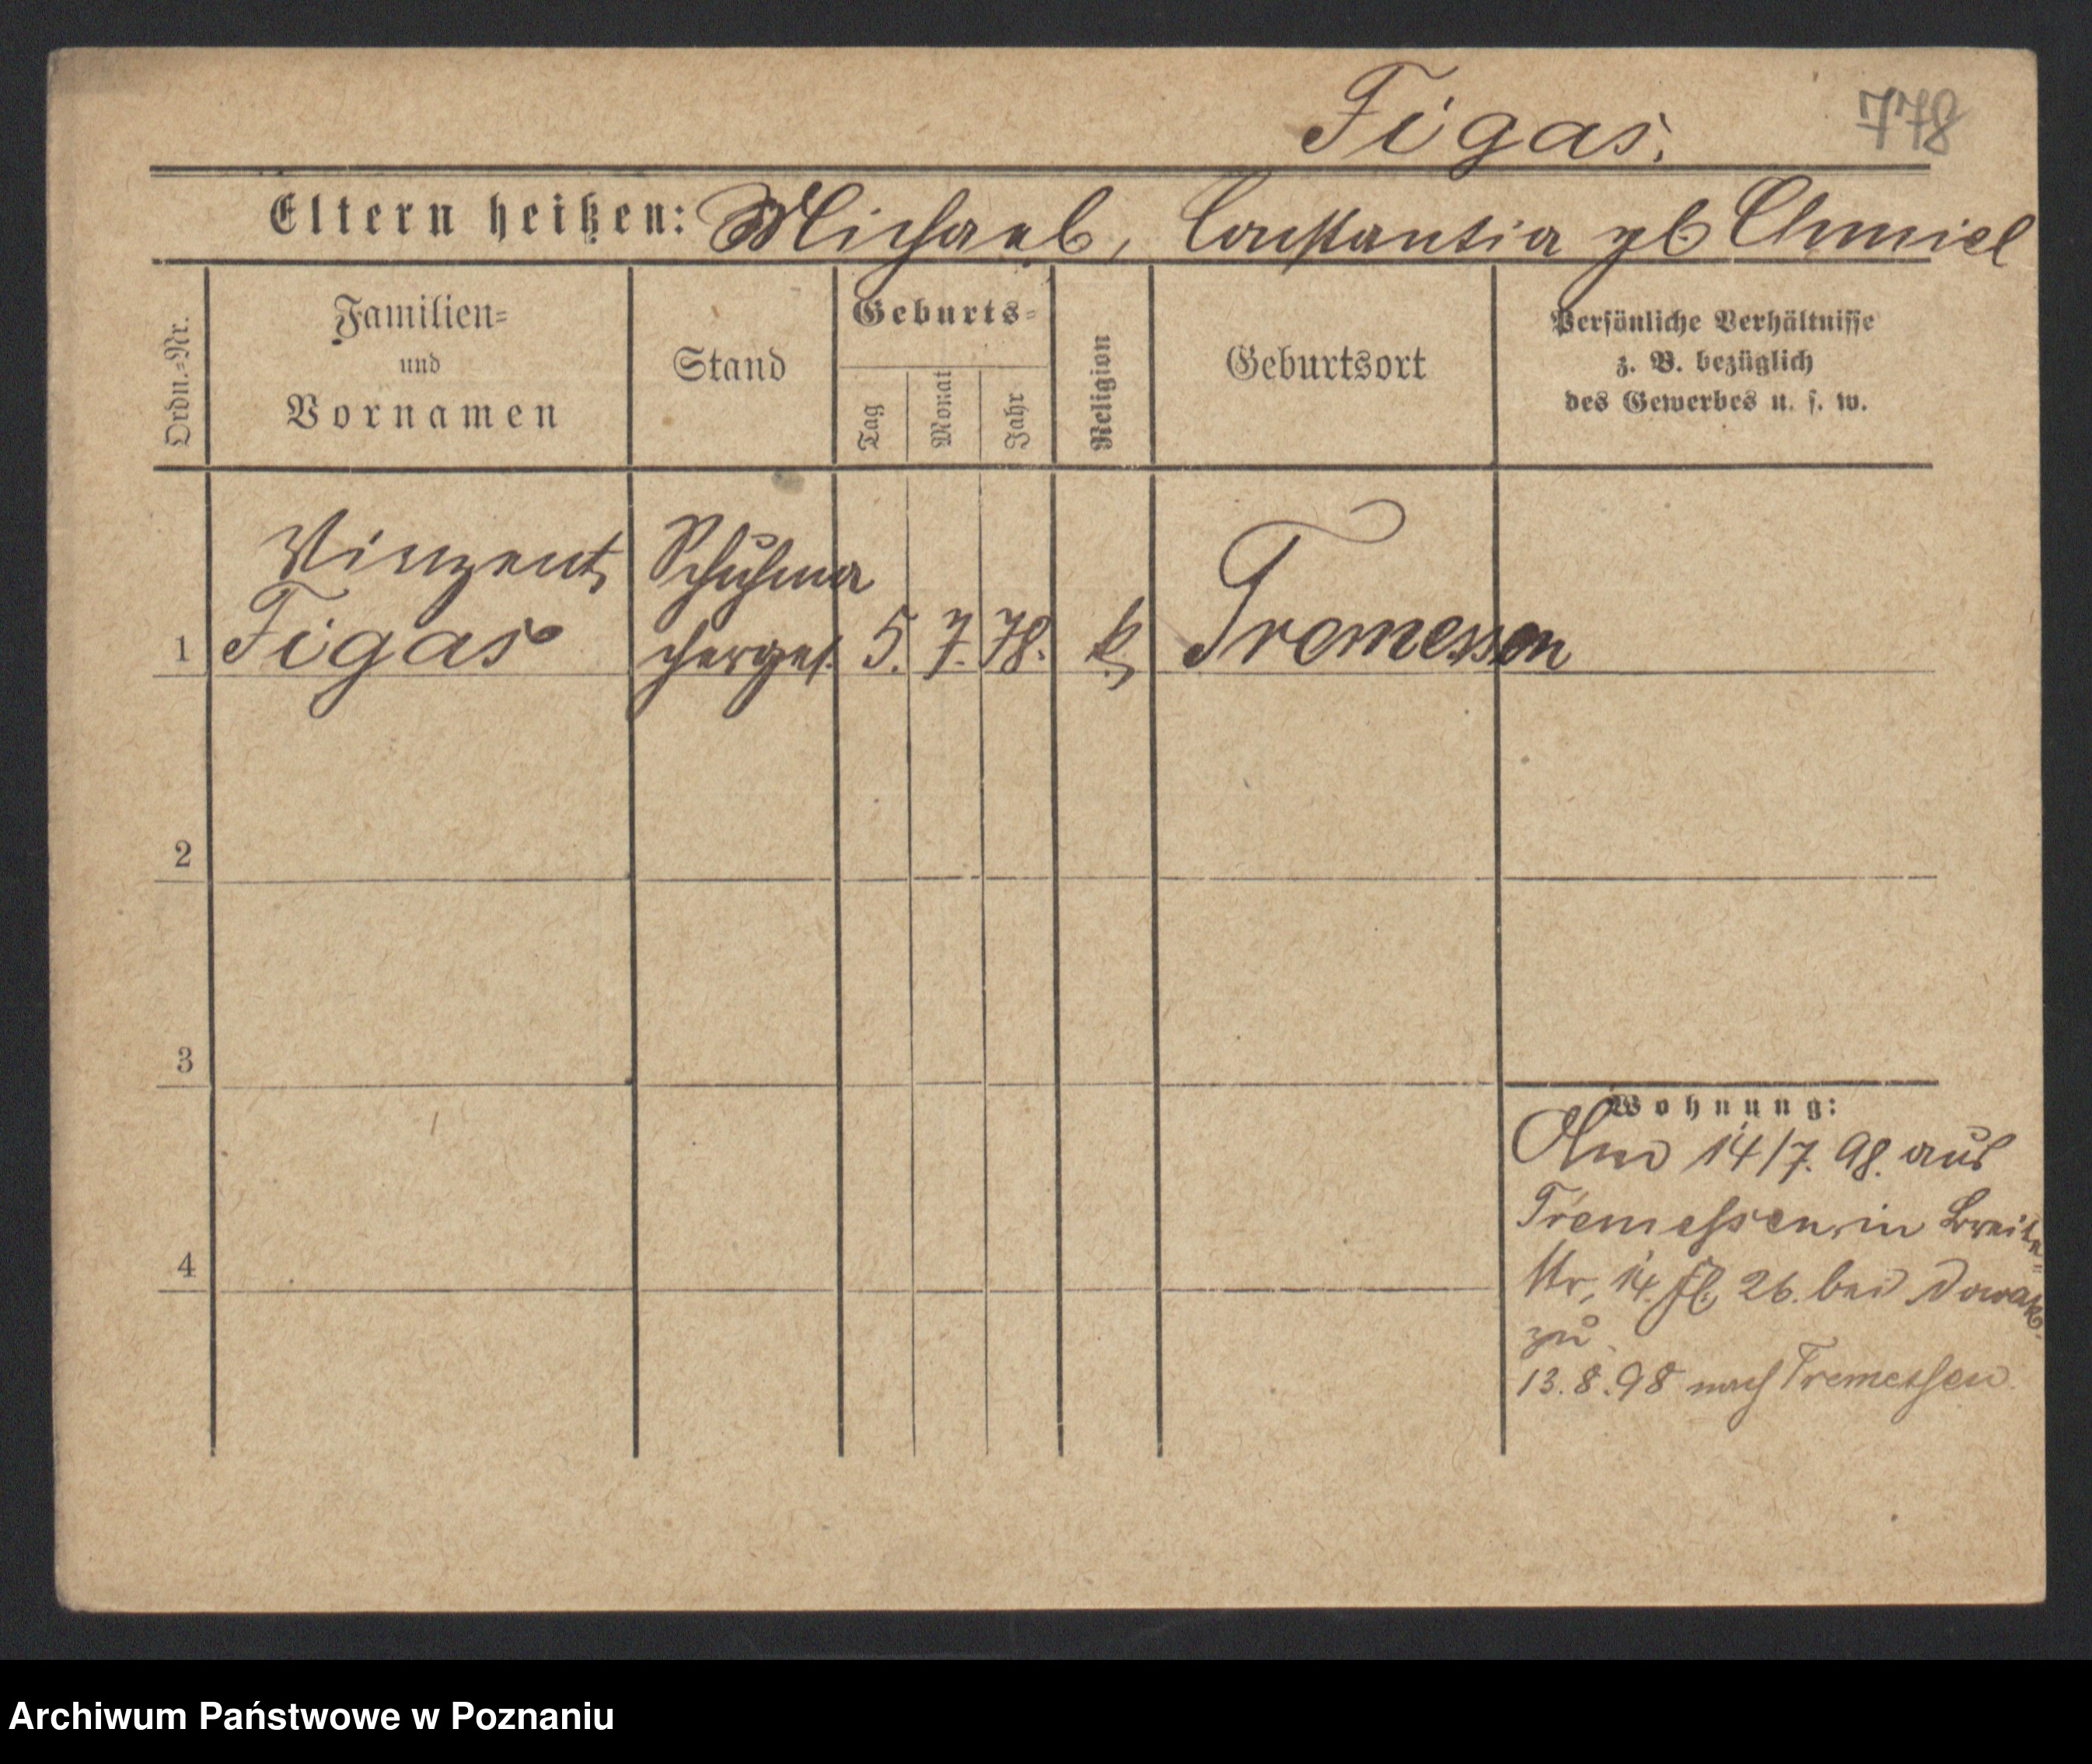 Figas.
778
Eltern heißen: Michael, Constantia gb Chmiel
Ordn.=Nr.
Familien=
und
Vornamen
Stand
Geburts=
Tag
Monat
Jahr
Religion
Geburtsort
Persönliche Verhältnisse
z. B. bezüglich
des Gewerbes u. s. w.
Vinzent Schuhma
1 Figas cherges. 5. 7. 78. k Tremessen
2
3
Wohnung:
Am 14/7. 98. aus
Tremessen, in Breite=
4
str. 14. Fl. 26. bei
zu
13.8.98 nach Tremessen.
Archiwum Państwowe w Poznaniu